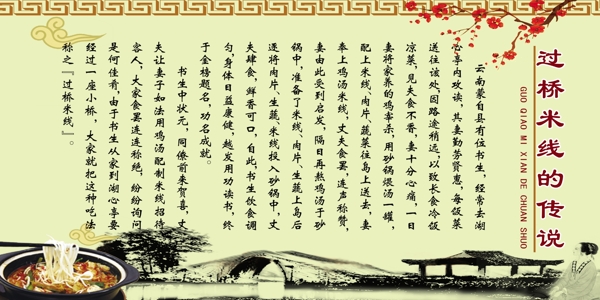 过桥米线的传说
GUO QIAO MI XIAN DE CHUAN SHUO
云南蒙自县有位书生，经常去湖
心亭内攻读，其妻勤劳贤惠，每饭菜
送往该处，因路途稍远，以致长食冷饭
凉菜，见夫食不香，妻十分心痛，一日
妻将家养的鸡宰杀，用砂锅煨汤一罐，
配上米线、肉片、蔬菜往岛上送去，妻
奉上鸡汤米线，丈夫食罢，连声称赞，
妻由此受到启发，隔日再熬鸡汤于砂
锅中，准备了米线、肉片、生蔬上岛后
逐将肉片、生蔬、米线投入砂锅中，丈
夫肆食，鲜香可口，自此，书生饮食调
匀，身体日益康健，越发用功读书，终
于金榜题名，功名成就。
书生中状元，同僚前来贺喜，丈
夫让妻子如法用鸡汤配制米线招待
客人，大家食罢连连称绝，纷纷询问
是何佳肴，由于书生从家到湖心亭要
经过一座小桥，大家就把这种吃法
称之『过桥米线』。